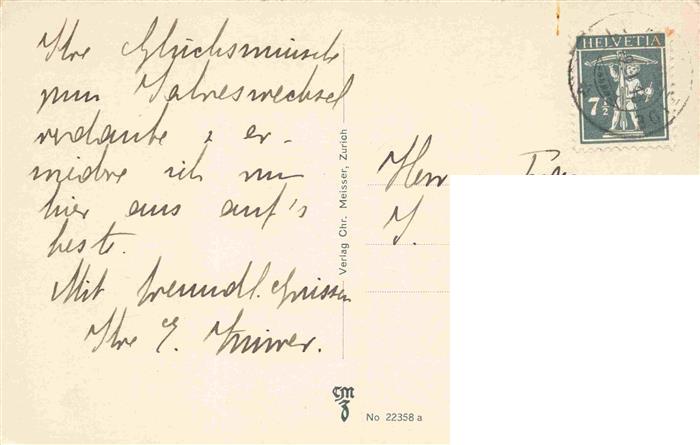 Ihre Glückswünsche
zum Jahreswechsel
verdanke & er-
widre ich von
hier aus auf's
beste.
Mit freundl. Grüssen
Ihre E.
Verlag Chr. Meisser, Zurich
CMZ
No 22358 a
HELVETIA
7½
Herrn
J.